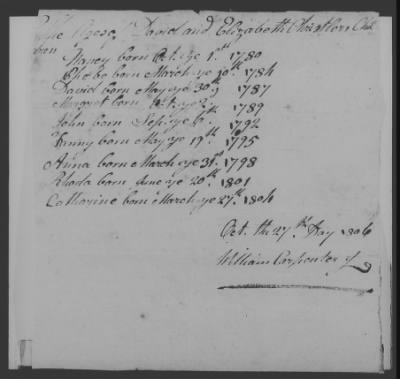 The Ages of David and Elizabeth Children
Nancy born Oct. ye 1st 1780
Phebe born March ye 10th 1784
David born May ye 30th 1787
Margret born Oct. ye 1789
John born Sep. ye 1792
Fanny born May ye 19th 1795
Anna born March ye 31st 1798
Rhoda born June ye 20th 1801
Catharine born March ye 27th 1804
Oct. th 27th Day 1806
William Carpenter